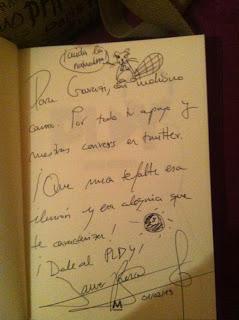 ¡Cuida la
naturaleza!
Para con muchísimo
cariño. Por todo tu apoyo y
nuestras convers en twitter.
¡Que nunca te falte esa
ilusión y esa alegría que
te caracteriza!
¡Dale al PLAY!
M
01/02/13